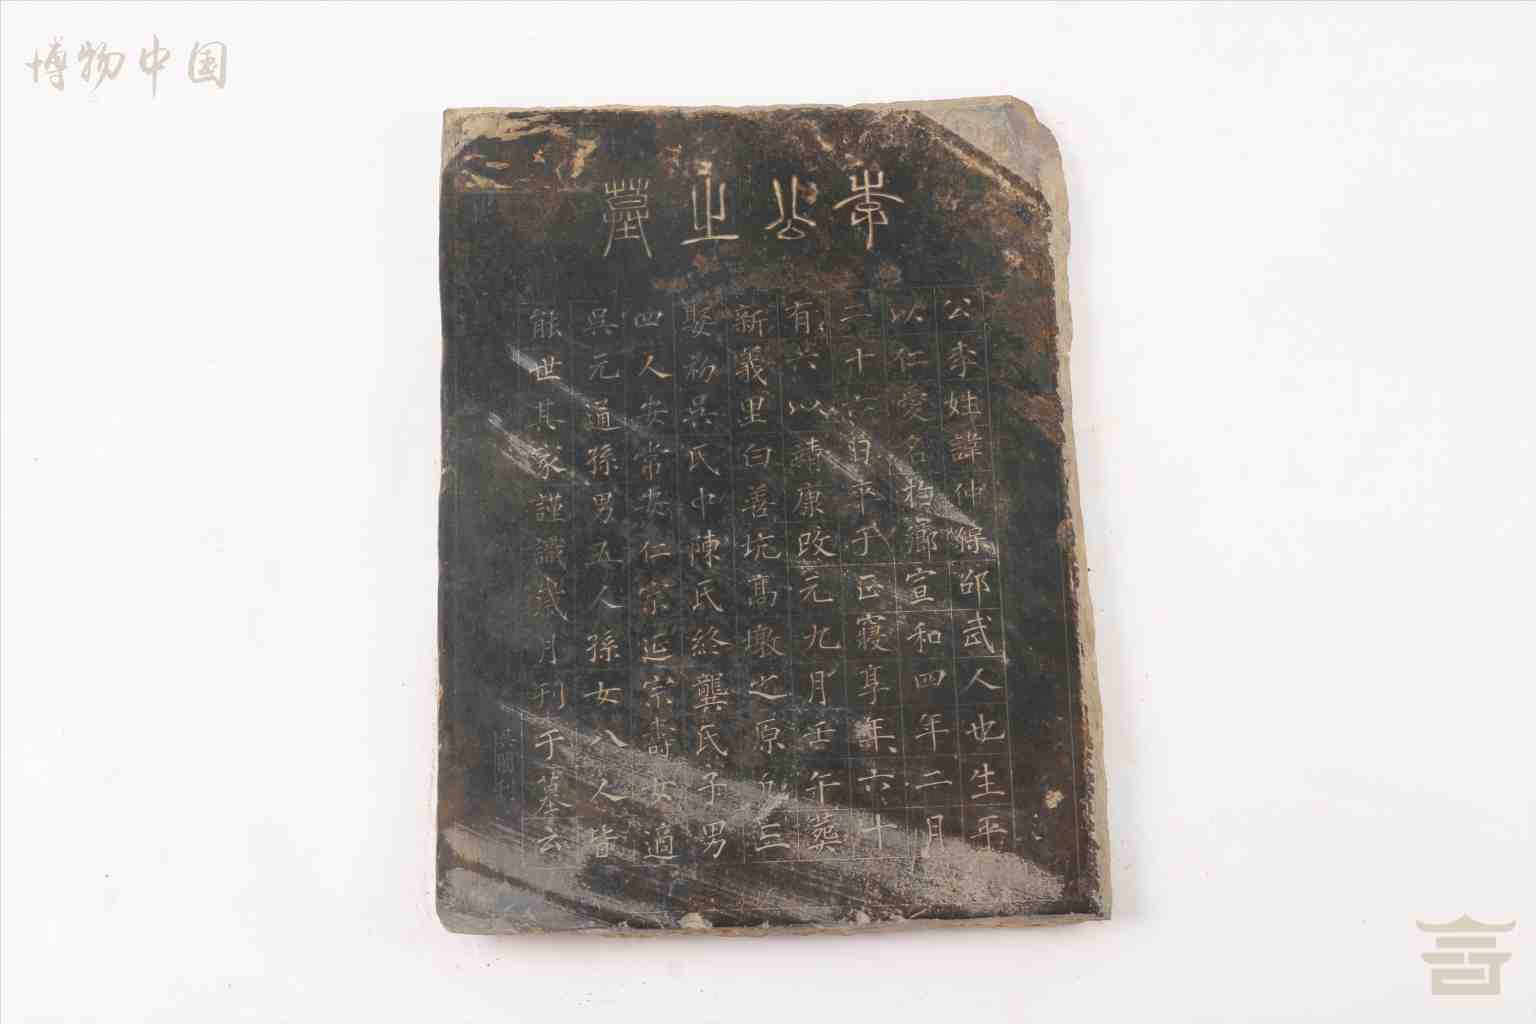 博物中国
李公之墓
公李姓諱仲保邵武人也生平
以仁愛名於鄉宣和四年二月
二十六日卒于正寢享年六十
有六以靖康改元九月壬午葬
新義里白善坑高墩之原凡三
娶初吳氏中陳氏終龔氏子男
四人安常安仁宗延宗壽女適
吳元通孫男五人孫女八人皆
能世其家謹識歲月刊于墓云
刊